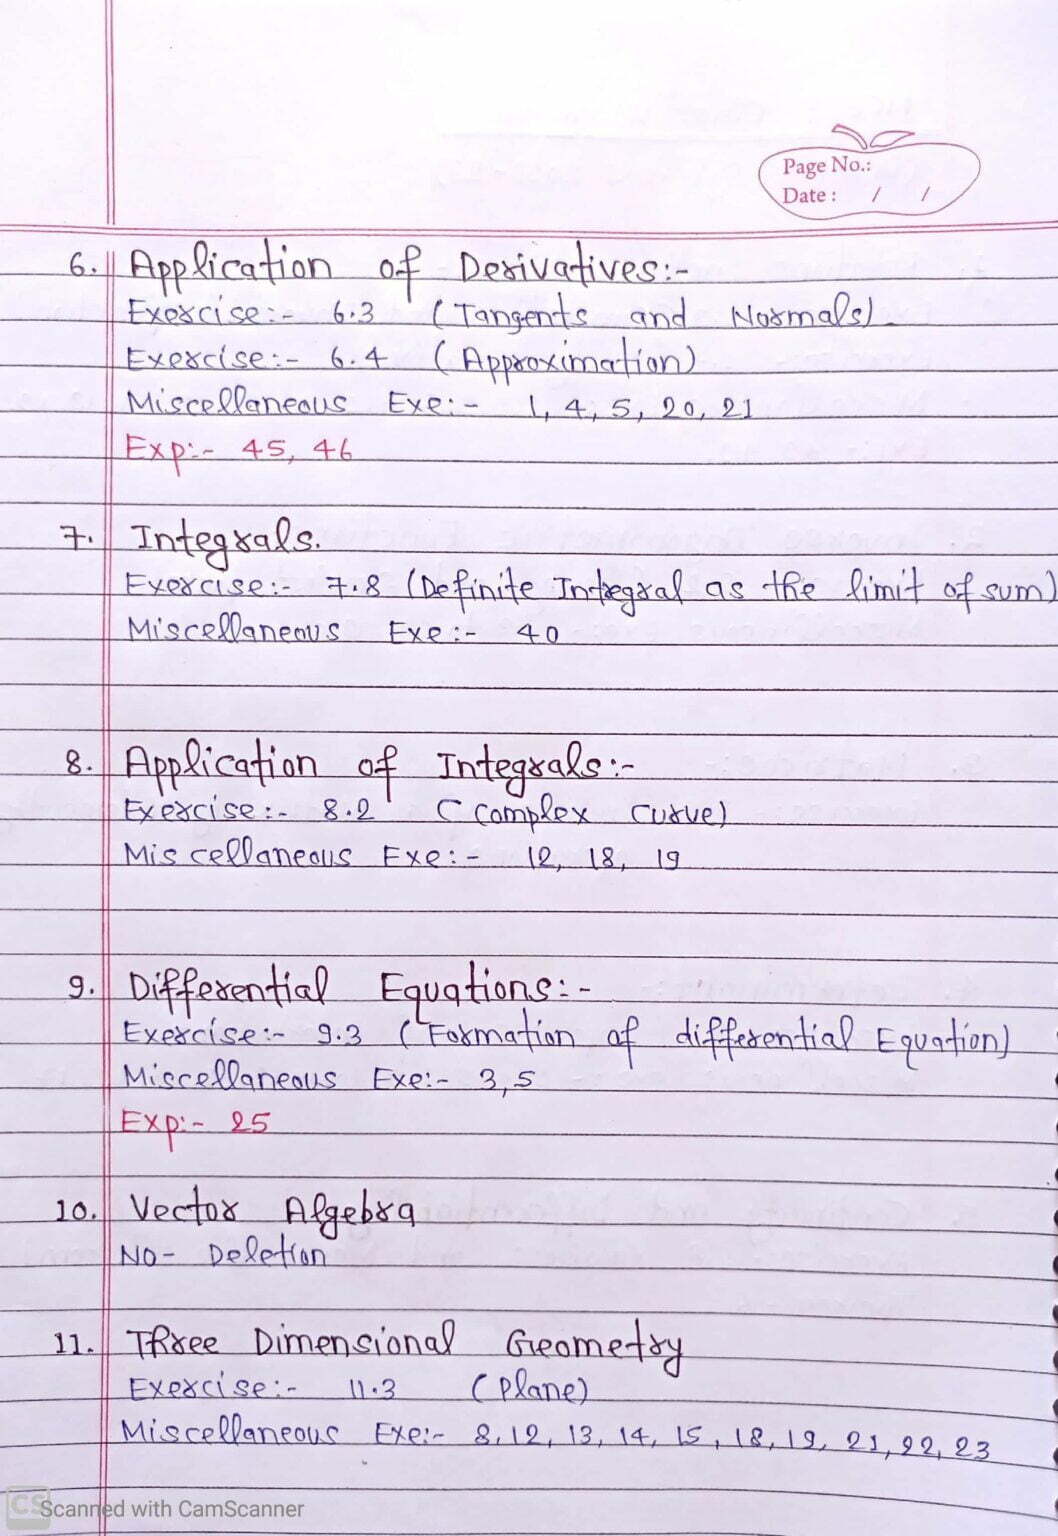 Page No.:
Date : / /
6. Application of Derivatives:-
Exercise:- 6.3 (Tangents and Normals)
Exercise:- 6.4 (Approximation)
Miscellaneous Exe:- 1, 4, 5, 20, 21
Exp:- 45, 46
7. Integrals.
Exercise:- 7.8 (Definite Integral as the limit of sum)
Miscellaneous Exe:- 40
8. Application of Integrals:-
Exercise:- 8.2 (Complex Curve)
Miscellaneous Exe:- 12, 18, 19
9. Differential Equations:-
Exercise:- 9.3 (Formation of differential Equation)
Miscellaneous Exe:- 3, 5
Exp:- 25
10. Vector Algebra
No- Deletion
11. Three Dimensional Geometry
Exercise:- 11.3 (Plane)
Miscellaneous Exe:- 8, 12, 13, 14, 15, 18, 19, 21, 22, 23
CS Scanned with CamScanner